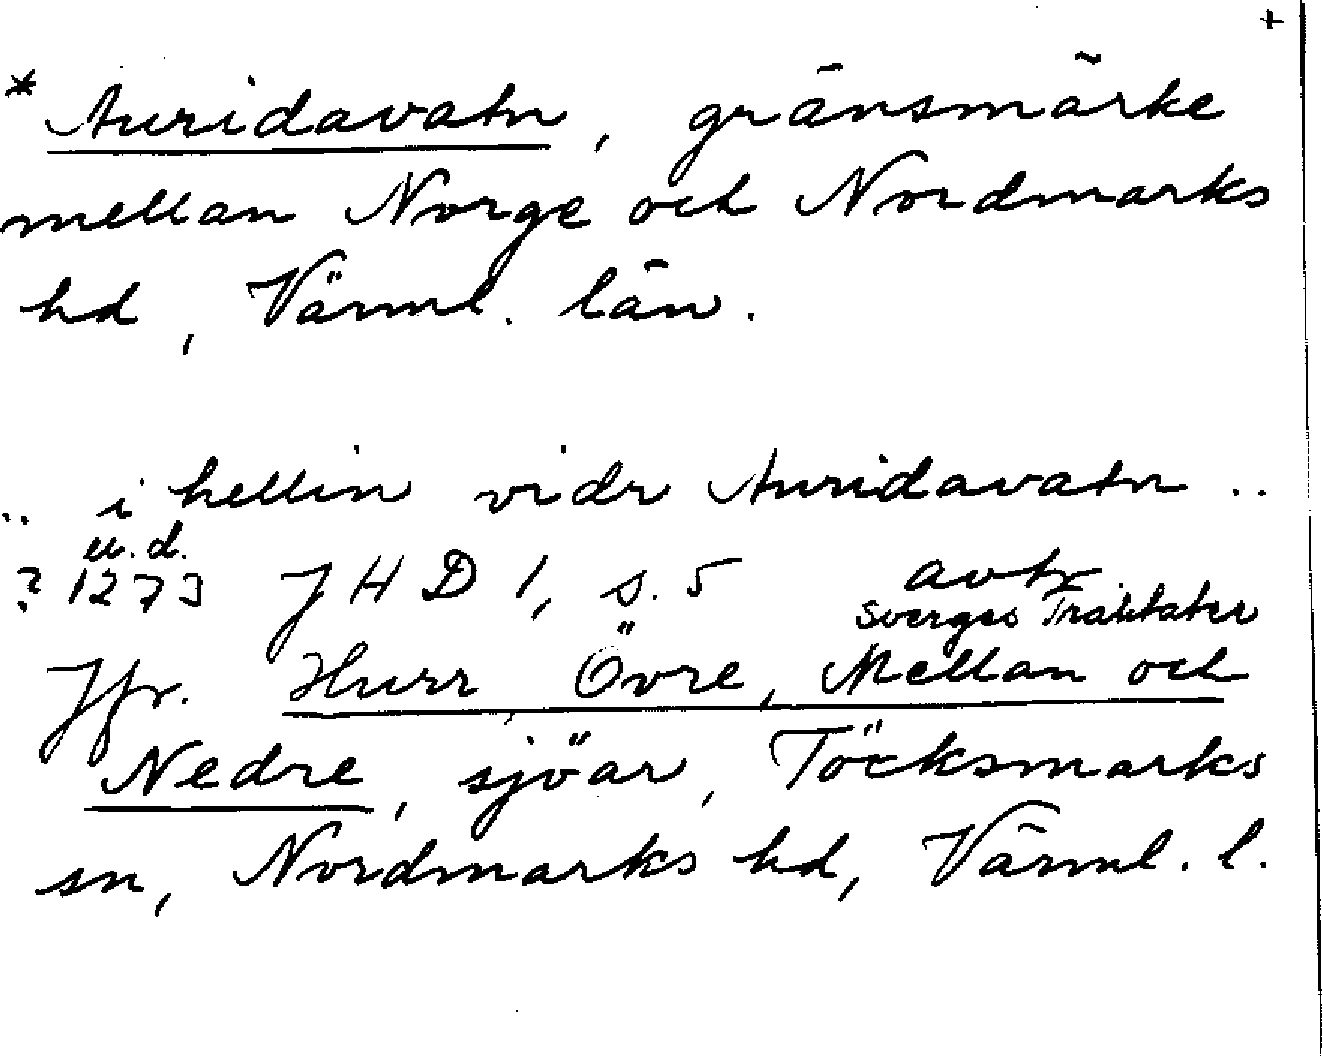 +
* Auridavatn, gränsmärke
mellan Norge och Nordmarks
hd, Värml. län.
.. i hellin vidr Auridavatn ..
u.d.
? 1273 JHD 1, s. 5 avtr
Sverges Traktater
Jfr. Hurr Övre, Mellan och
Nedre, sjöar, Töcksmarks
sn, Nordmarks hd, Värml. l.